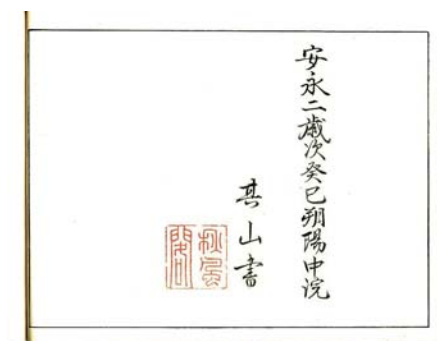 安永二歳次癸巳朔陽中浣
其山書